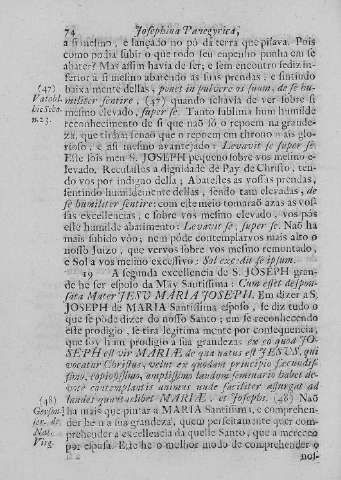 74 Josephina Panegyrica,
a si mesmo, e lançado no pò da terra que pisava. Pois
como podia subir o que todo seu empenho punha em se
abater? Mas assim havia de ser; e sem encontro sendo in-
ferior a si mesmo abatendo as suas prendas, e sentindo
baixamente dellas, ponet in pulvere os suum, de se hu-
(47)
militer sentire, (47) quando se havia de ver sobre si
mesmo elevado, super se. Tanto sublima hum humilde
reconhecimento de si que naõ só o repoem na grande-
za, que tinha; senaõ que o repoem em throno mais glo-
rioso, e a si mesmo avantejado: Levavit se super se.
n. 23.
Este sois meu S. JOSEPH pequeno sobre vos mesmo e-
levado. Recusasses a dignidade de Pay de Christo, ten-
do vos por indigno della; Abatesses as vossas prendas,
sentindo humildemente dellas, sendo tam elevadas, de
se humiliter sentire: com este meio tomaraõ azas as vos-
sas excellencias, e sobre vos mesmo elevado, vos pôs
esse humilde abatimento: Levavit se, super se. Naõ ha
mais subido vôo; nem pôde contemplarvos mais alto o
nosso Juizo, que vervos sobre vos mesmo remontado,
e Sol a vos mesmo excessivo: Sol excedit se ipsum.
19 A segunda excellencia de S. JOSEPH gran-
de he ser esposo da May Santissima: Cum esset despon-
sata Mater JESU MARIA JOSEPH. Em dizer a S.
JOSEPH de MARIA Santissima esposo, se diz tudo o
que se póde dizer do nosso Santo; em se reconhecendo
este prodigio, se tira legitima mente por consequencia,
que foy hum prodigio a sua grandeza: ex eo quod JO-
SEPH est vir MARIÆ de qua natus est JESUS, qui
vocatur Christus, velut ex quodam principio fæcundis-
simo, copiosissimo, amplissimo laudum seminario habet de-
vote contemplantis animus unde faciliter assurgat ad
(48)
laudes quantaslibet MARIÆ, et Josephi. (48) Naõ
ha mais que pintar a MARIA Santissima, e comprehen-
der he n a sua grandeza, quem perfeitamente quer com-
Nat.
Virg.
prehender a excellencia da quelle Santo, que a mereceo
por esposa. Este he o melhor modo de comprehender o
nos-